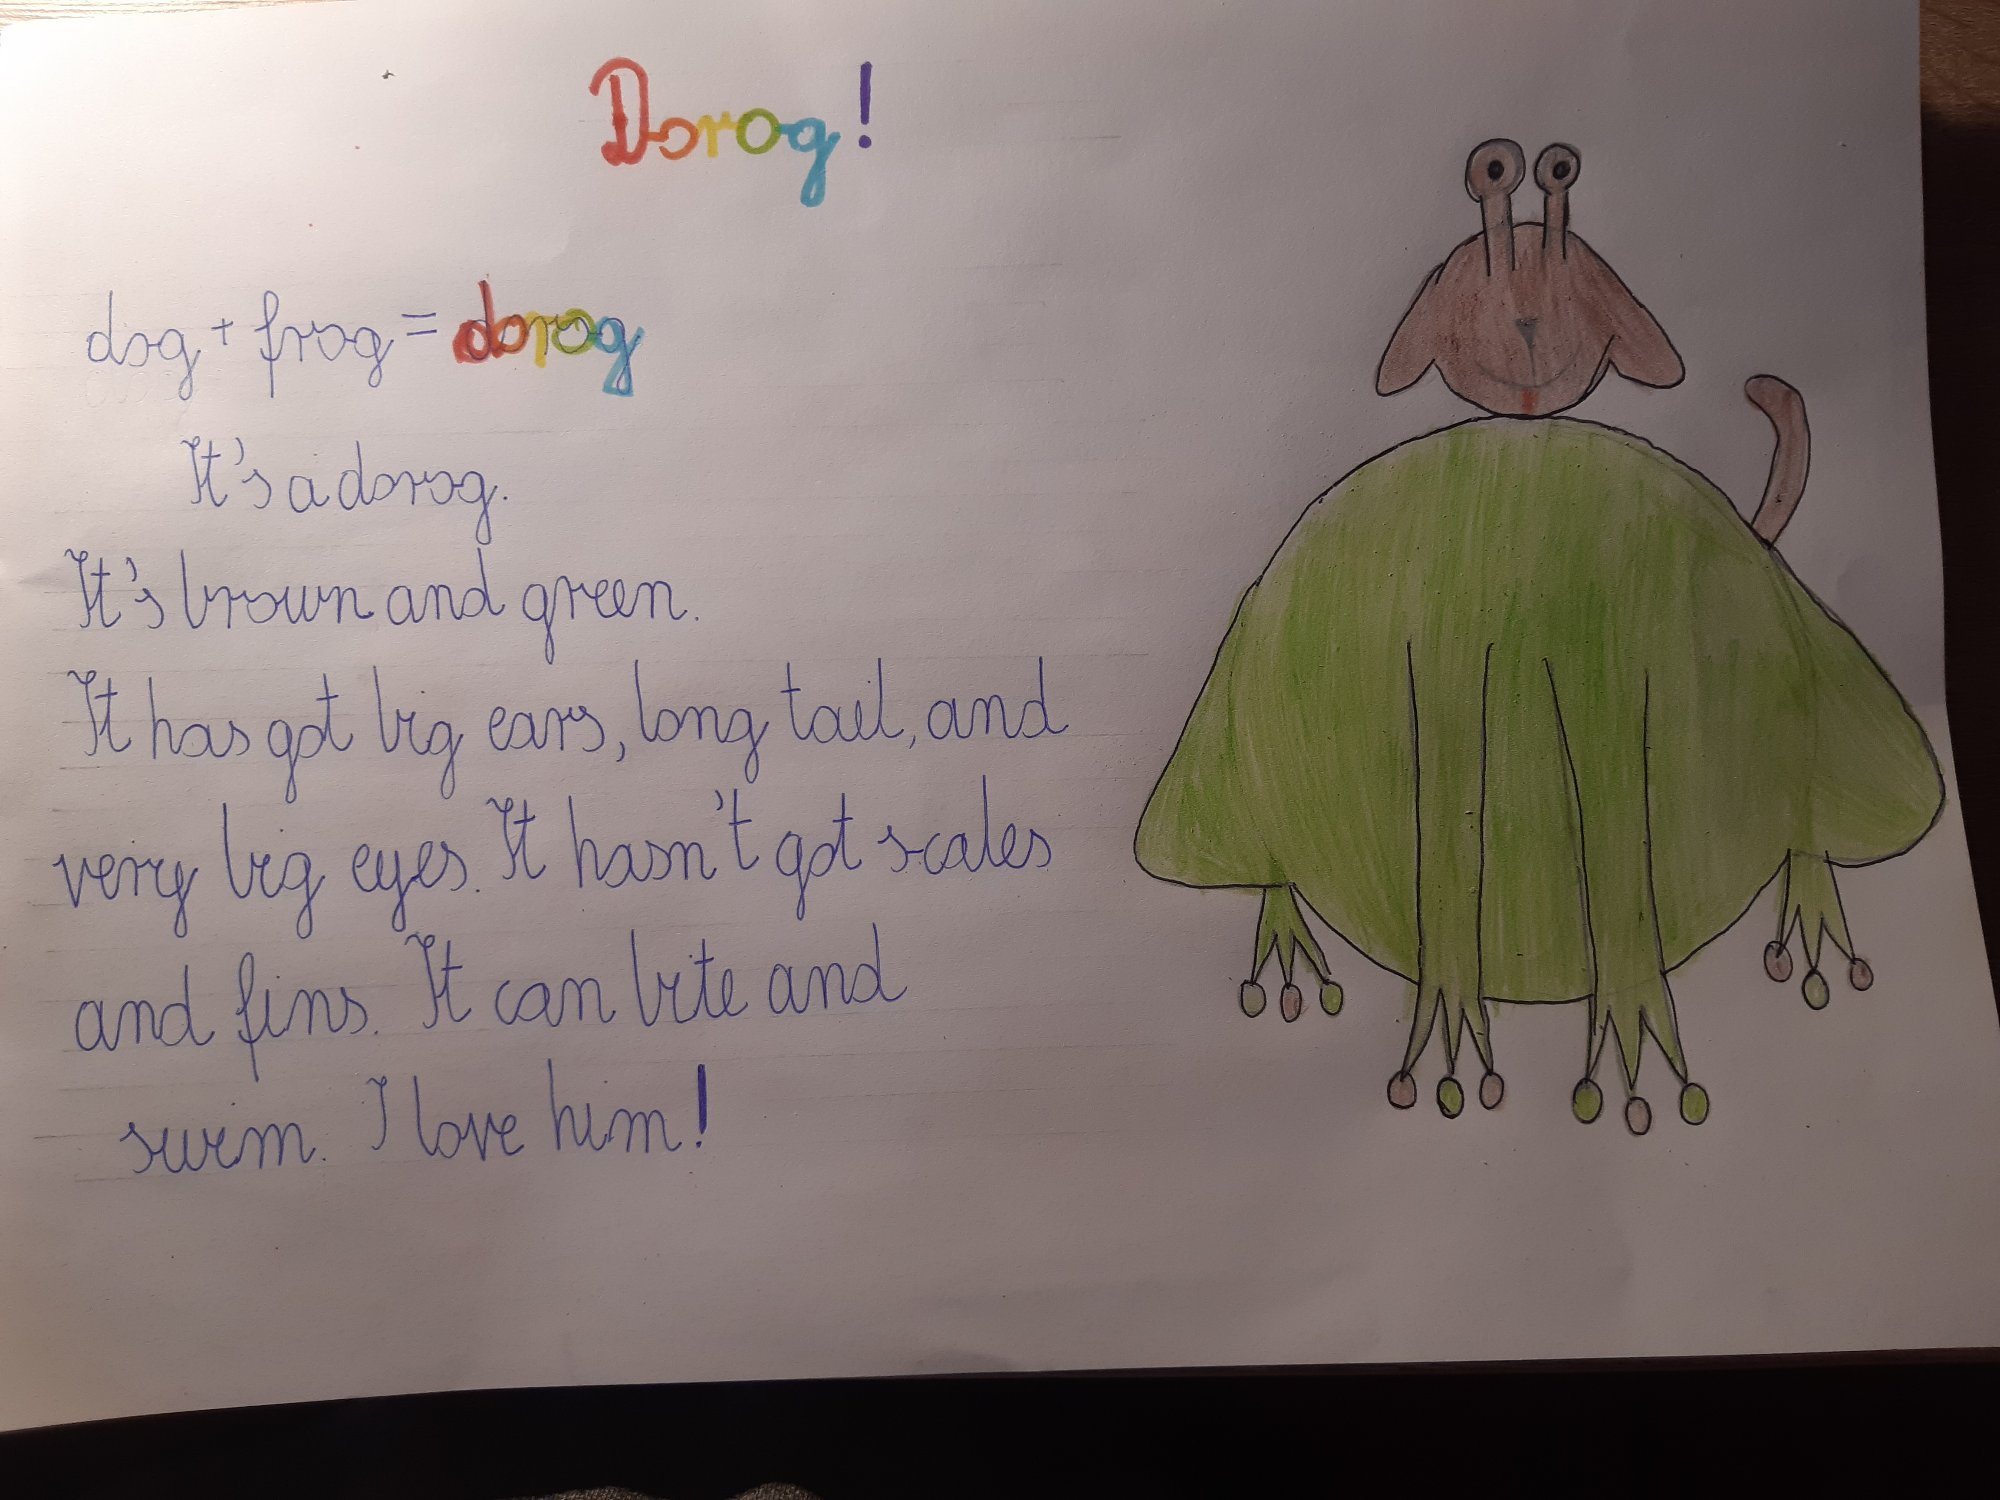 Dorog!
dog + frog = dorog
It's a dorog.
It's brown and green.
It has got big ears, long tail, and
very big eyes. It hasn't got scales
and fins. It can bite and
swim. I love him!